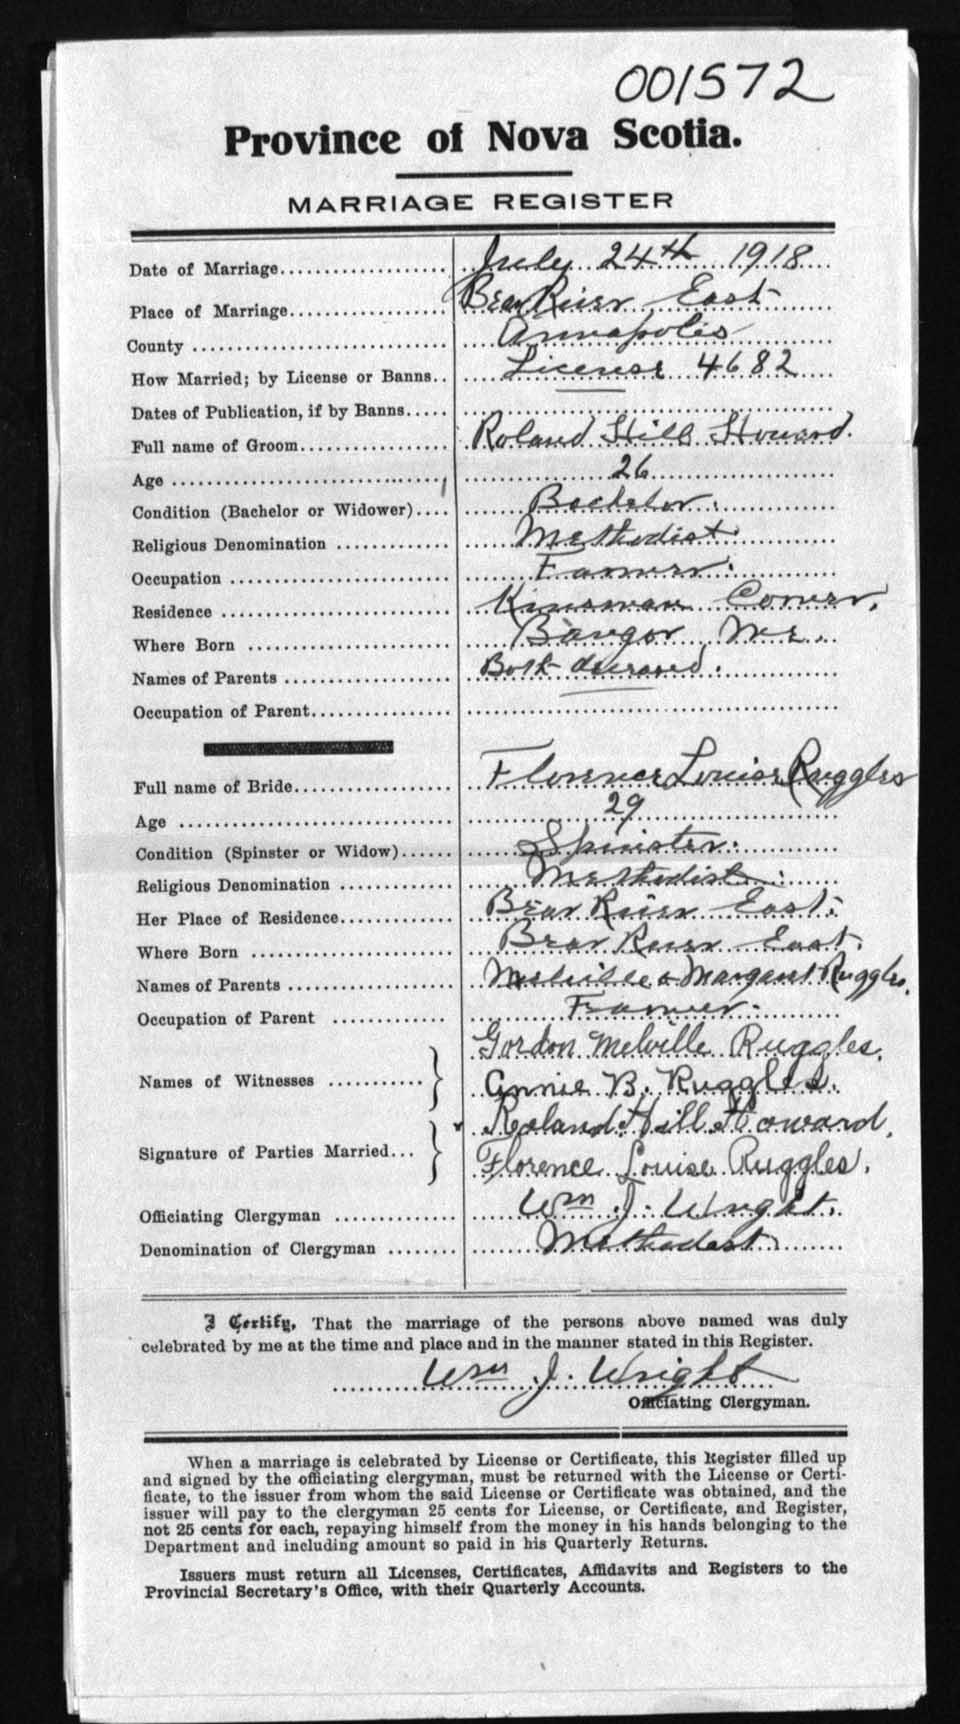 001572
Province of Nova Scotia.
MARRIAGE REGISTER
Date of Marriage.................... July 24th 1918
Place of Marriage................... Bear River East
County ............................ Annapolis
How Married; by License or Banns.. License 4682
Dates of Publication, if by Banns.....
Full name of Groom.................. Roland Hill Howard.
Age ............................ 26
Condition (Bachelor or Widower).... Bachelor.
Religious Denomination ............. Methodist.
Occupation ........................ Farmer.
Residence ......................... Kinsman Corner.
Where Born ....................... Bangor Me.
Names of Parents .................. Both deceased.
Occupation of Parent................
Full name of Bride.................. Florence Louise Ruggles
Age ............................ 29
Condition (Spinster or Widow)...... Spinster.
Religious Denomination ............. Methodist.
Her Place of Residence............. Bear River East.
Where Born ....................... Bear River East.
Names of Parents .................. Melville & Margaret Ruggles.
Occupation of Parent .............. Farmer.
Names of Witnesses ............ } Gordon Melville Ruggles.
Annie B. Ruggles.
Signature of Parties Married... } Roland Hill Howard.
Florence Louise Ruggles.
Officiating Clergyman .............. Wm J. Wright.
Denomination of Clergyman ........ Methodist
I Certify, That the marriage of the persons above named was duly
celebrated by me at the time and place and in the manner stated in this Register.
Wm J. Wright
Officiating Clergyman.
When a marriage is celebrated by License or Certificate, this Register filled up
and signed by the officiating clergyman, must be returned with the License or Certi-
ficate, to the issuer from whom the said License or Certificate was obtained, and the
issuer will pay to the clergyman 25 cents for License, or Certificate, and Register,
not 25 cents for each, repaying himself from the money in his hands belonging to the
Department and including amount so paid in his Quarterly Returns.
Issuers must return all Licenses, Certificates, Affidavits and Registers to the
Provincial Secretary's Office, with their Quarterly Accounts.